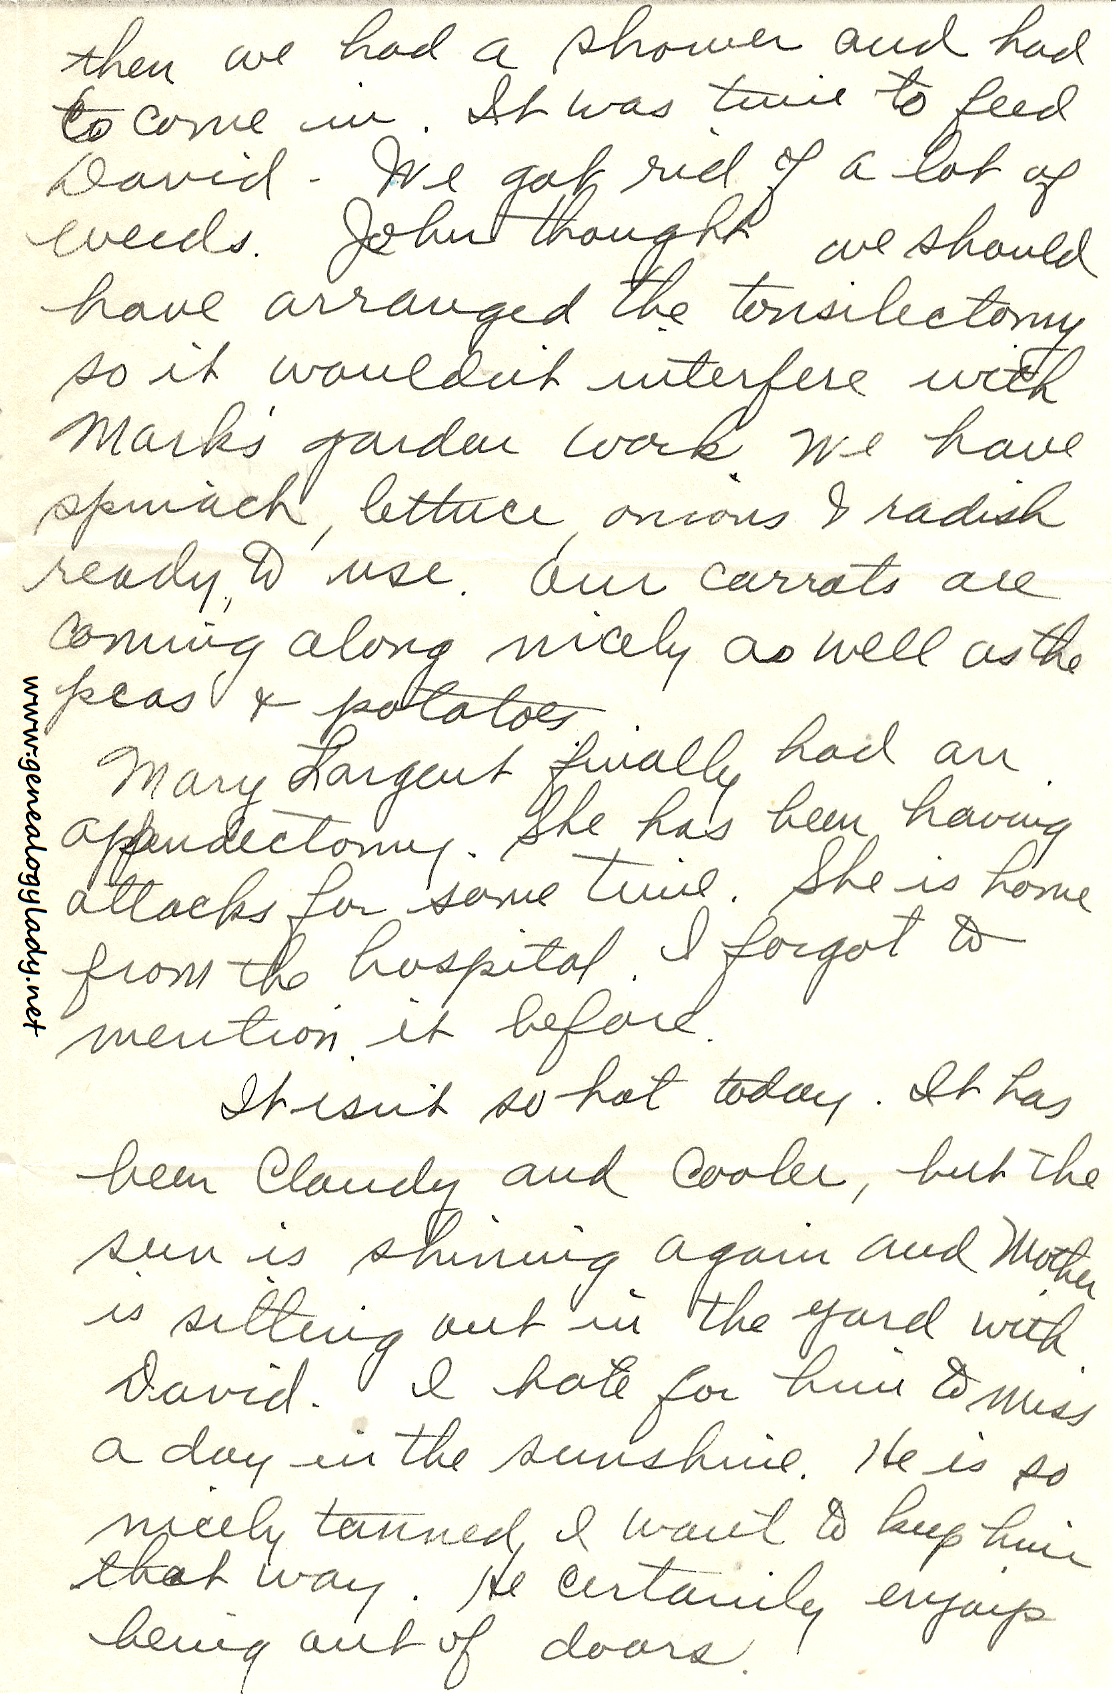 then we had a shower and had
to come in. It was time to feed
David. We got rid of a lot of
weeds. John thought we should
have arranged the tonsilectomy
so it wouldn't interfere with
Mark's garden work. We have
spinach, lettuce, onions & radish
ready to use. Our carrots are
coming along nicely as well as the
peas & potatoes.
Mary Largent finally had an
appendectomy. She has been having
attacks for some time. She is home
from the hospital. I forgot to
mention it before.
It isn't so hot today. It has
been cloudy and cooler, but the
sun is shining again and Mother
is sitting out in the yard with
David. I hate for him to miss
a day in the sunshine. He is so
nicely tanned, I want to keep him
that way. He certainly enjoys
being out of doors.
www.genealogylady.net